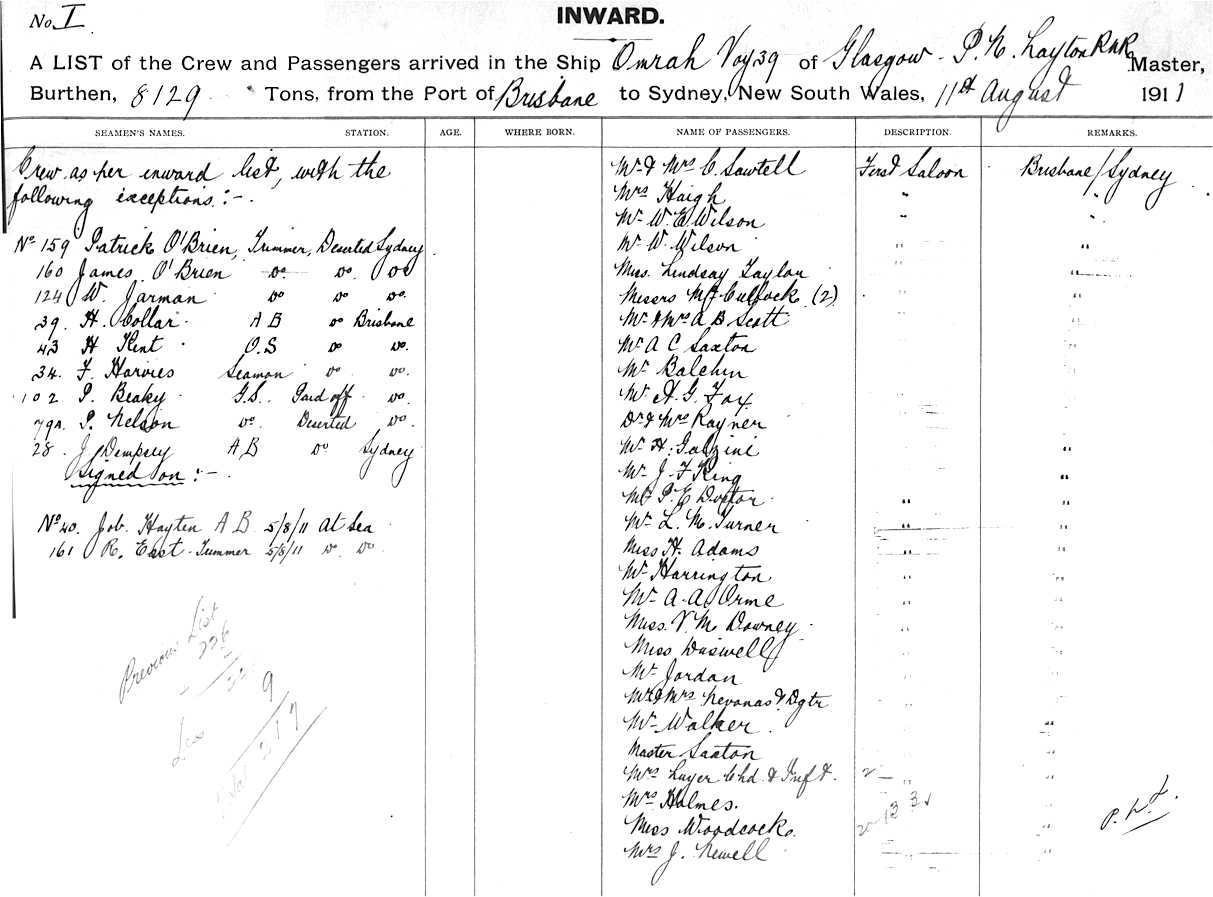 No. I
INWARD.
A LIST of the Crew and Passengers arrived in the Ship Omrah Voy 39 of Glasgow - P. N. Layton R.N.R. Master,
Burthen, 8129 Tons, from the Port of Brisbane to Sydney, New South Wales, 11th August 1911
SEAMEN'S NAMES. STATION. AGE. WHERE BORN. NAME OF PASSENGERS. DESCRIPTION. REMARKS.
Crew as per inward list, with the
following exceptions :-
No 159 Patrick O'Brien, Trimmer, Deserted Sydney
160 James O'Brien Do Do Do
124 W. Jarman Do Do Do.
39. H. Collar A B Do Brisbane
43 H Kent O.S Do Do.
34. F. Harvies Seaman Do Do.
102 P. Beaky G.S. Paid off Do.
79A. P. Nelson Do. Deserted Do.
28 J Dempsey A B Do Sydney
Signed on :-
No 40. Job. Hayten A B 5/8/11 At Sea
161 R. East Trimmer 5/8/11 Do Do.
Previous List
226
Less 9
Total 217
Mr & Mrs C. Sawtell First Saloon Brisbane/Sydney
Mrs Haigh " "
Mr W. E. Wilson " "
Mr W. Wilson " "
Miss Lindsay Taylor " "
Messrs McCullock (2) " "
Mr & Mrs A B Scott " "
Mr A C Saxton " "
Mr Balchin " "
Mr H. G. Fox " "
Dr & Mrs Rayner
Mr H. Galzini "
Mr J. F King "
Mr P. E Doctor " "
Mr L. M. Turner " "
Miss H. Adams " "
Mr Harrington " "
Mr A. A. Orme " "
Miss. V. M Downey " "
Miss Daswell " "
Mr Jordan " "
Mr & Mrs Nevanas & Dgtr " "
Mr Walker " "
Master Saxton " "
Mrs Luyer Chd. & Inft. " "
Mrs Holmes. "
Miss Woodcock. "
Mrs J. Newell " "
20 13 3